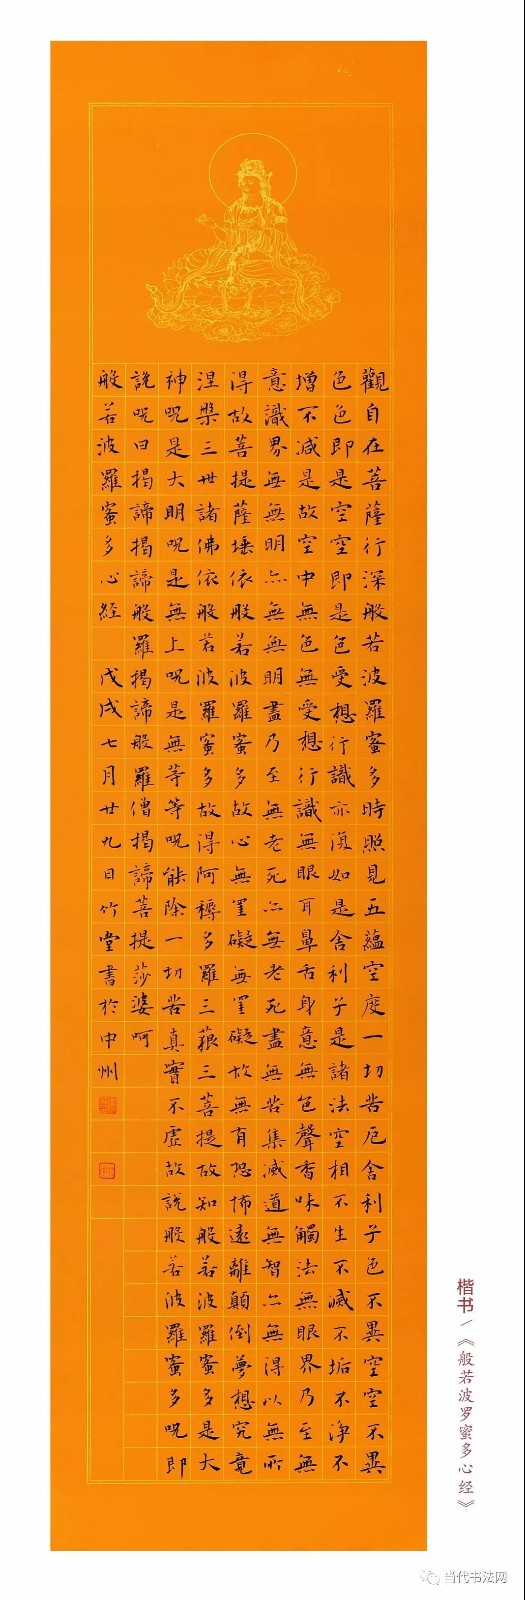 觀自在菩薩行深般若波羅蜜多時照見五蘊空度一切苦厄舍利子色不異空空不異
色色即是空空即是色受想行識亦復如是舍利子是諸法空相不生不滅不垢不淨不
增不減是故空中無色無受想行識無眼耳鼻舌身意無色聲香味觸法無眼界乃至無
意識界無無明亦無無明盡乃至無老死亦無老死盡無苦集滅道無智亦無得以無所
得故菩提薩埵依般若波羅蜜多故心無罣礙無罣礙故無有恐怖遠離顛倒夢想究竟
涅槃三世諸佛依般若波羅蜜多故得阿耨多羅三藐三菩提故知般若波羅蜜多是大
神呪是大明呪是無上呪是無等等呪能除一切苦真實不虛故說般若波羅蜜多呪即
說呪曰揭諦揭諦般羅揭諦般羅僧揭諦菩提莎婆呵
般若波羅蜜多心經 戊戌七月廿九日竹堂書於中州
楷书/《般若波罗蜜多心经》
当代书法网